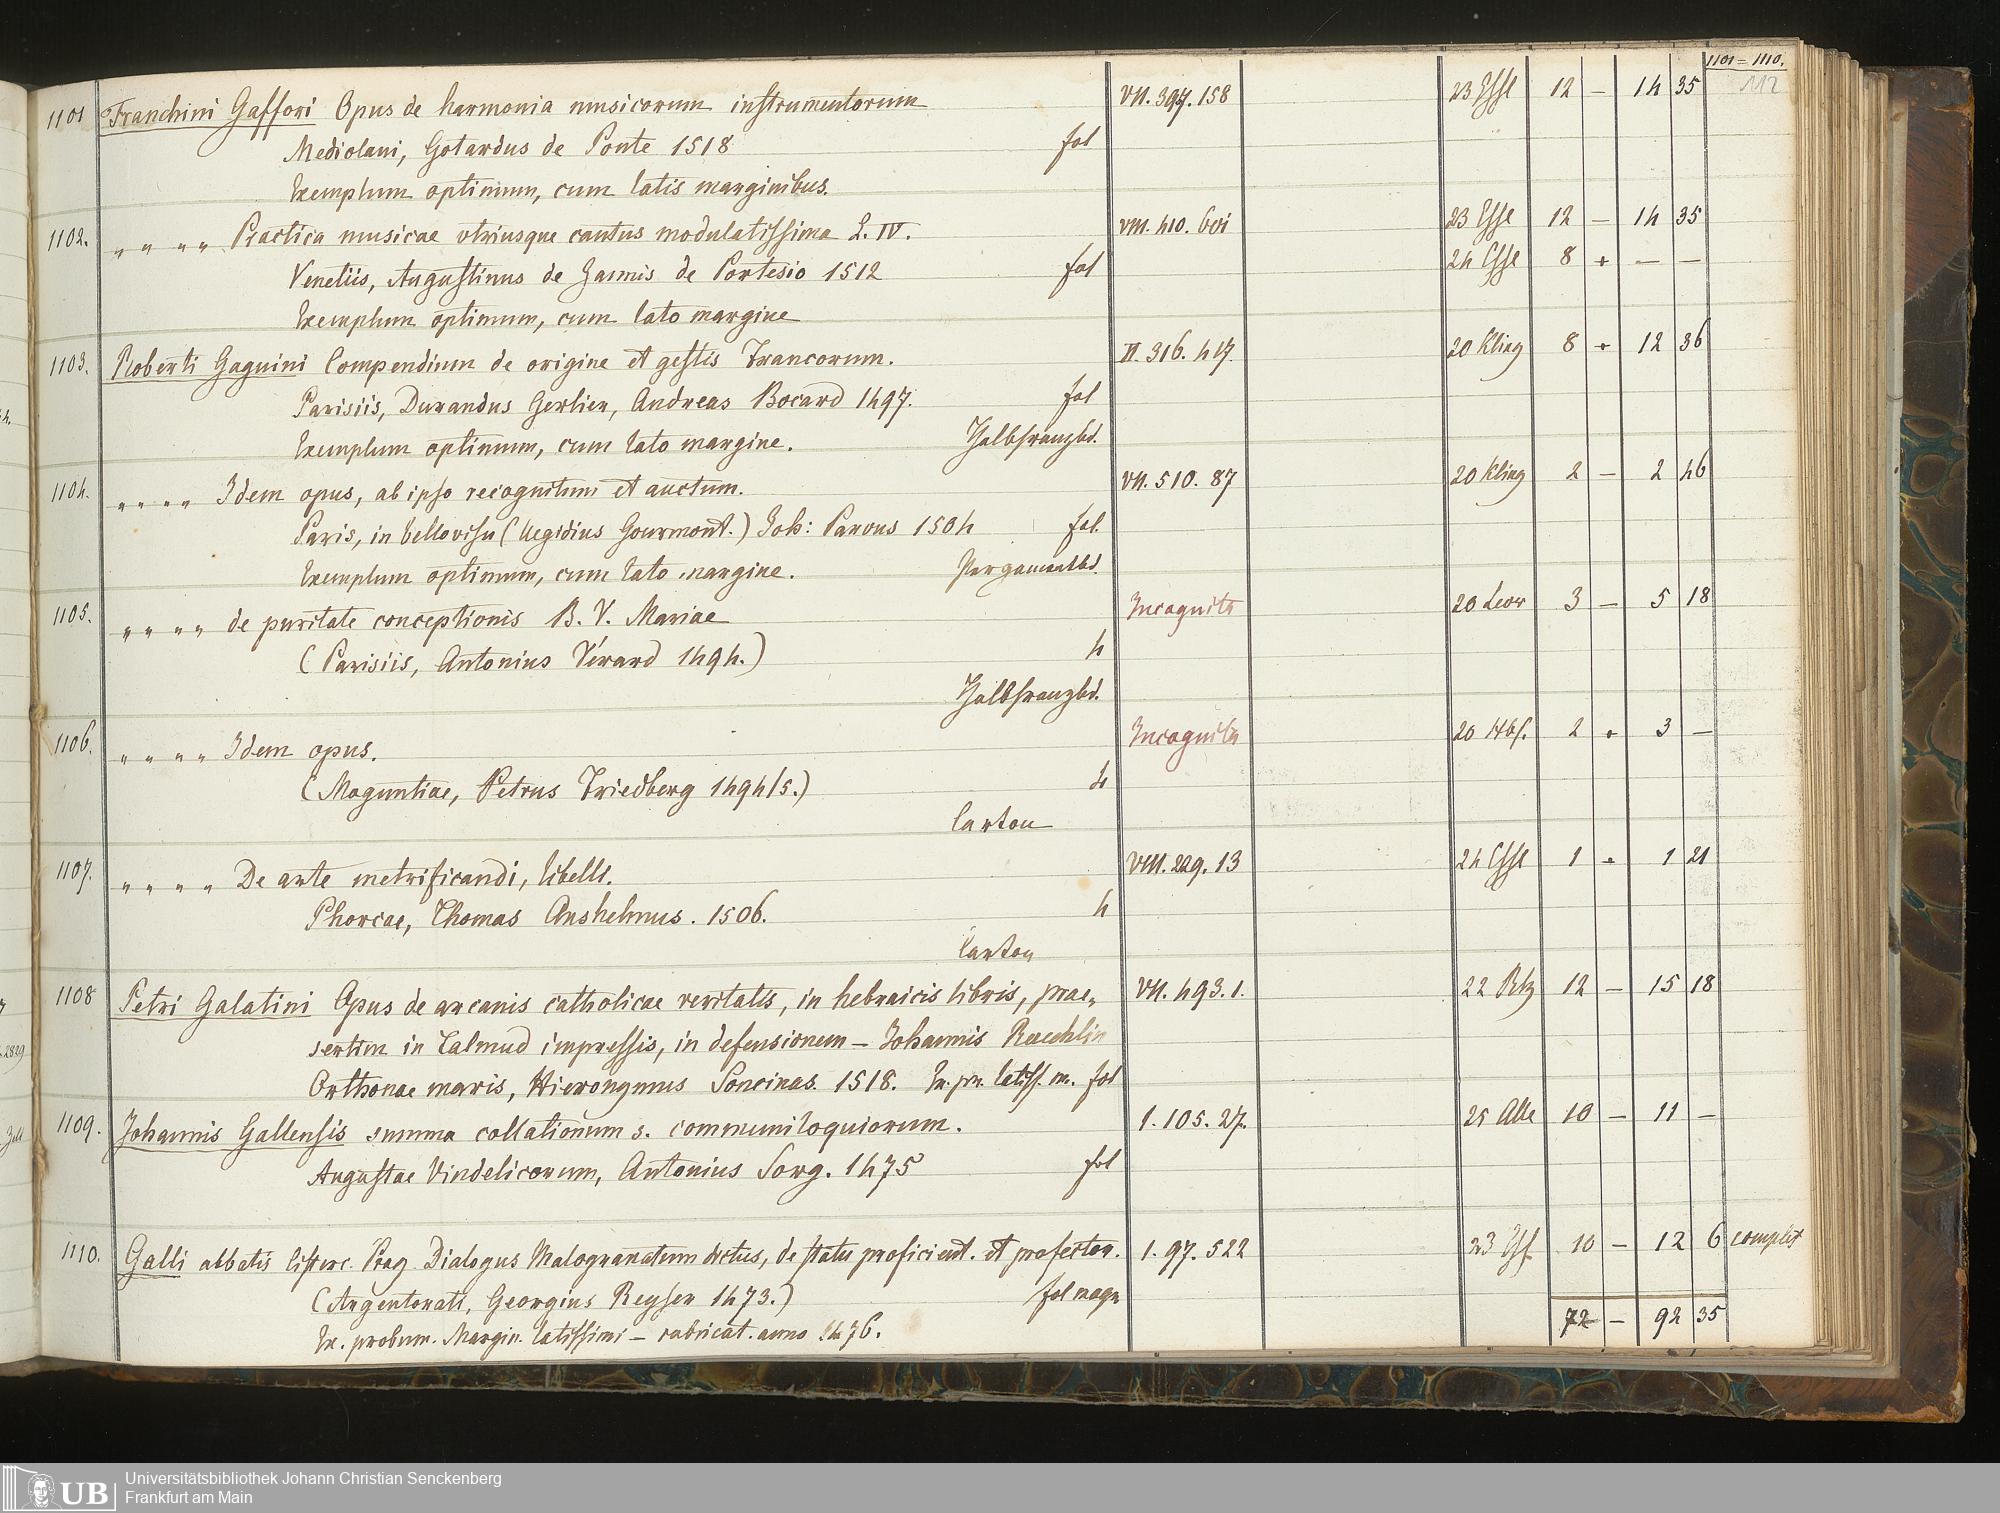 1101 = 1110.
112
1101 Franchini Gaffori Opus de harmonia musicorum instrumentorum VII. 397. 158 23 Essl 12 — 14 35
Mediolani, Gotardus de Ponte 1518 fol
Exemplum optimum, cum latis marginibus.
1102. " " " " Practica musicae utriusque cantus modulatissima L. IV. VIII. 410. 23 Essl 12 — 14 35
Venetiis, Augustinus de Zannis de Portesio 1512 fol 24 Essl 8 • — —
Exemplum optimum, cum lato margine
1103. Roberti Gaguini Compendium de origine et gestis Francorum. II. 316. 417. 20 Kling 8 • 12 36
Parisiis, Durandus Gerlier, Andreas Bocard 1497. fol
Exemplum optimum, cum lato margine. Halbfranzbd.
1104. " " " " Idem opus, ab ipso recognitum et auctum. VII. 510. 87 20 Kling 2 — 2 46
Paris, in bellovisu (Aegidius Gourmont.) Joh: Parvus 1504 fol.
Exemplum optimum, cum lato margine. Pergamentbd.
1105. " " " " de puritate conceptionis B. V. Mariae Incognita 20 3 — 5 18
(Parisiis, Antonius Vérard 1494.) 4
Halbfranzbd.
1106. " " " " Idem opus. Incognita 20 2 • 3 —
(Maguntiae, Petrus Friedberg 1494/5.) 4
Carton
1107. " " " " De arte metrificandi, libelli. VIII. 229. 13 24 Essl 1 • 1 21
Phorcae, Thomas Anshelmus. 1506. 4
Carton
1108 Petri Galatini Opus de arcanis catholicae veritatis, in hebraicis libris, prae- VII. 493. 1. 22 12 — 15 18
sertim in Talmud impressis, in defensionem — Johannis Reuchlin
Orthonae maris, Hieronymus Soncinas. 1518. Ex. pr. latiss. m. fol
1109. Johannis Gallensis summa collationum s. communiloquiorum. 1. 105. 27. 25 10 — 11 —
Augustae Vindelicorum, Antonius Sorg. 1475 fol
1110. Galli abbatis Cisterc. Prag. Dialogus Malogranatum dictus, de statu proficient. et profector. 1. 97. 522 23 10 — 12 6 complet
(Argentorati, Georgius Reyser 1473.) fol magn
Ex. probum. Margin. latissimi — rubricat. anno 1476. 72 — 92 35
UB Universitätsbibliothek Johann Christian Senckenberg
Frankfurt am Main